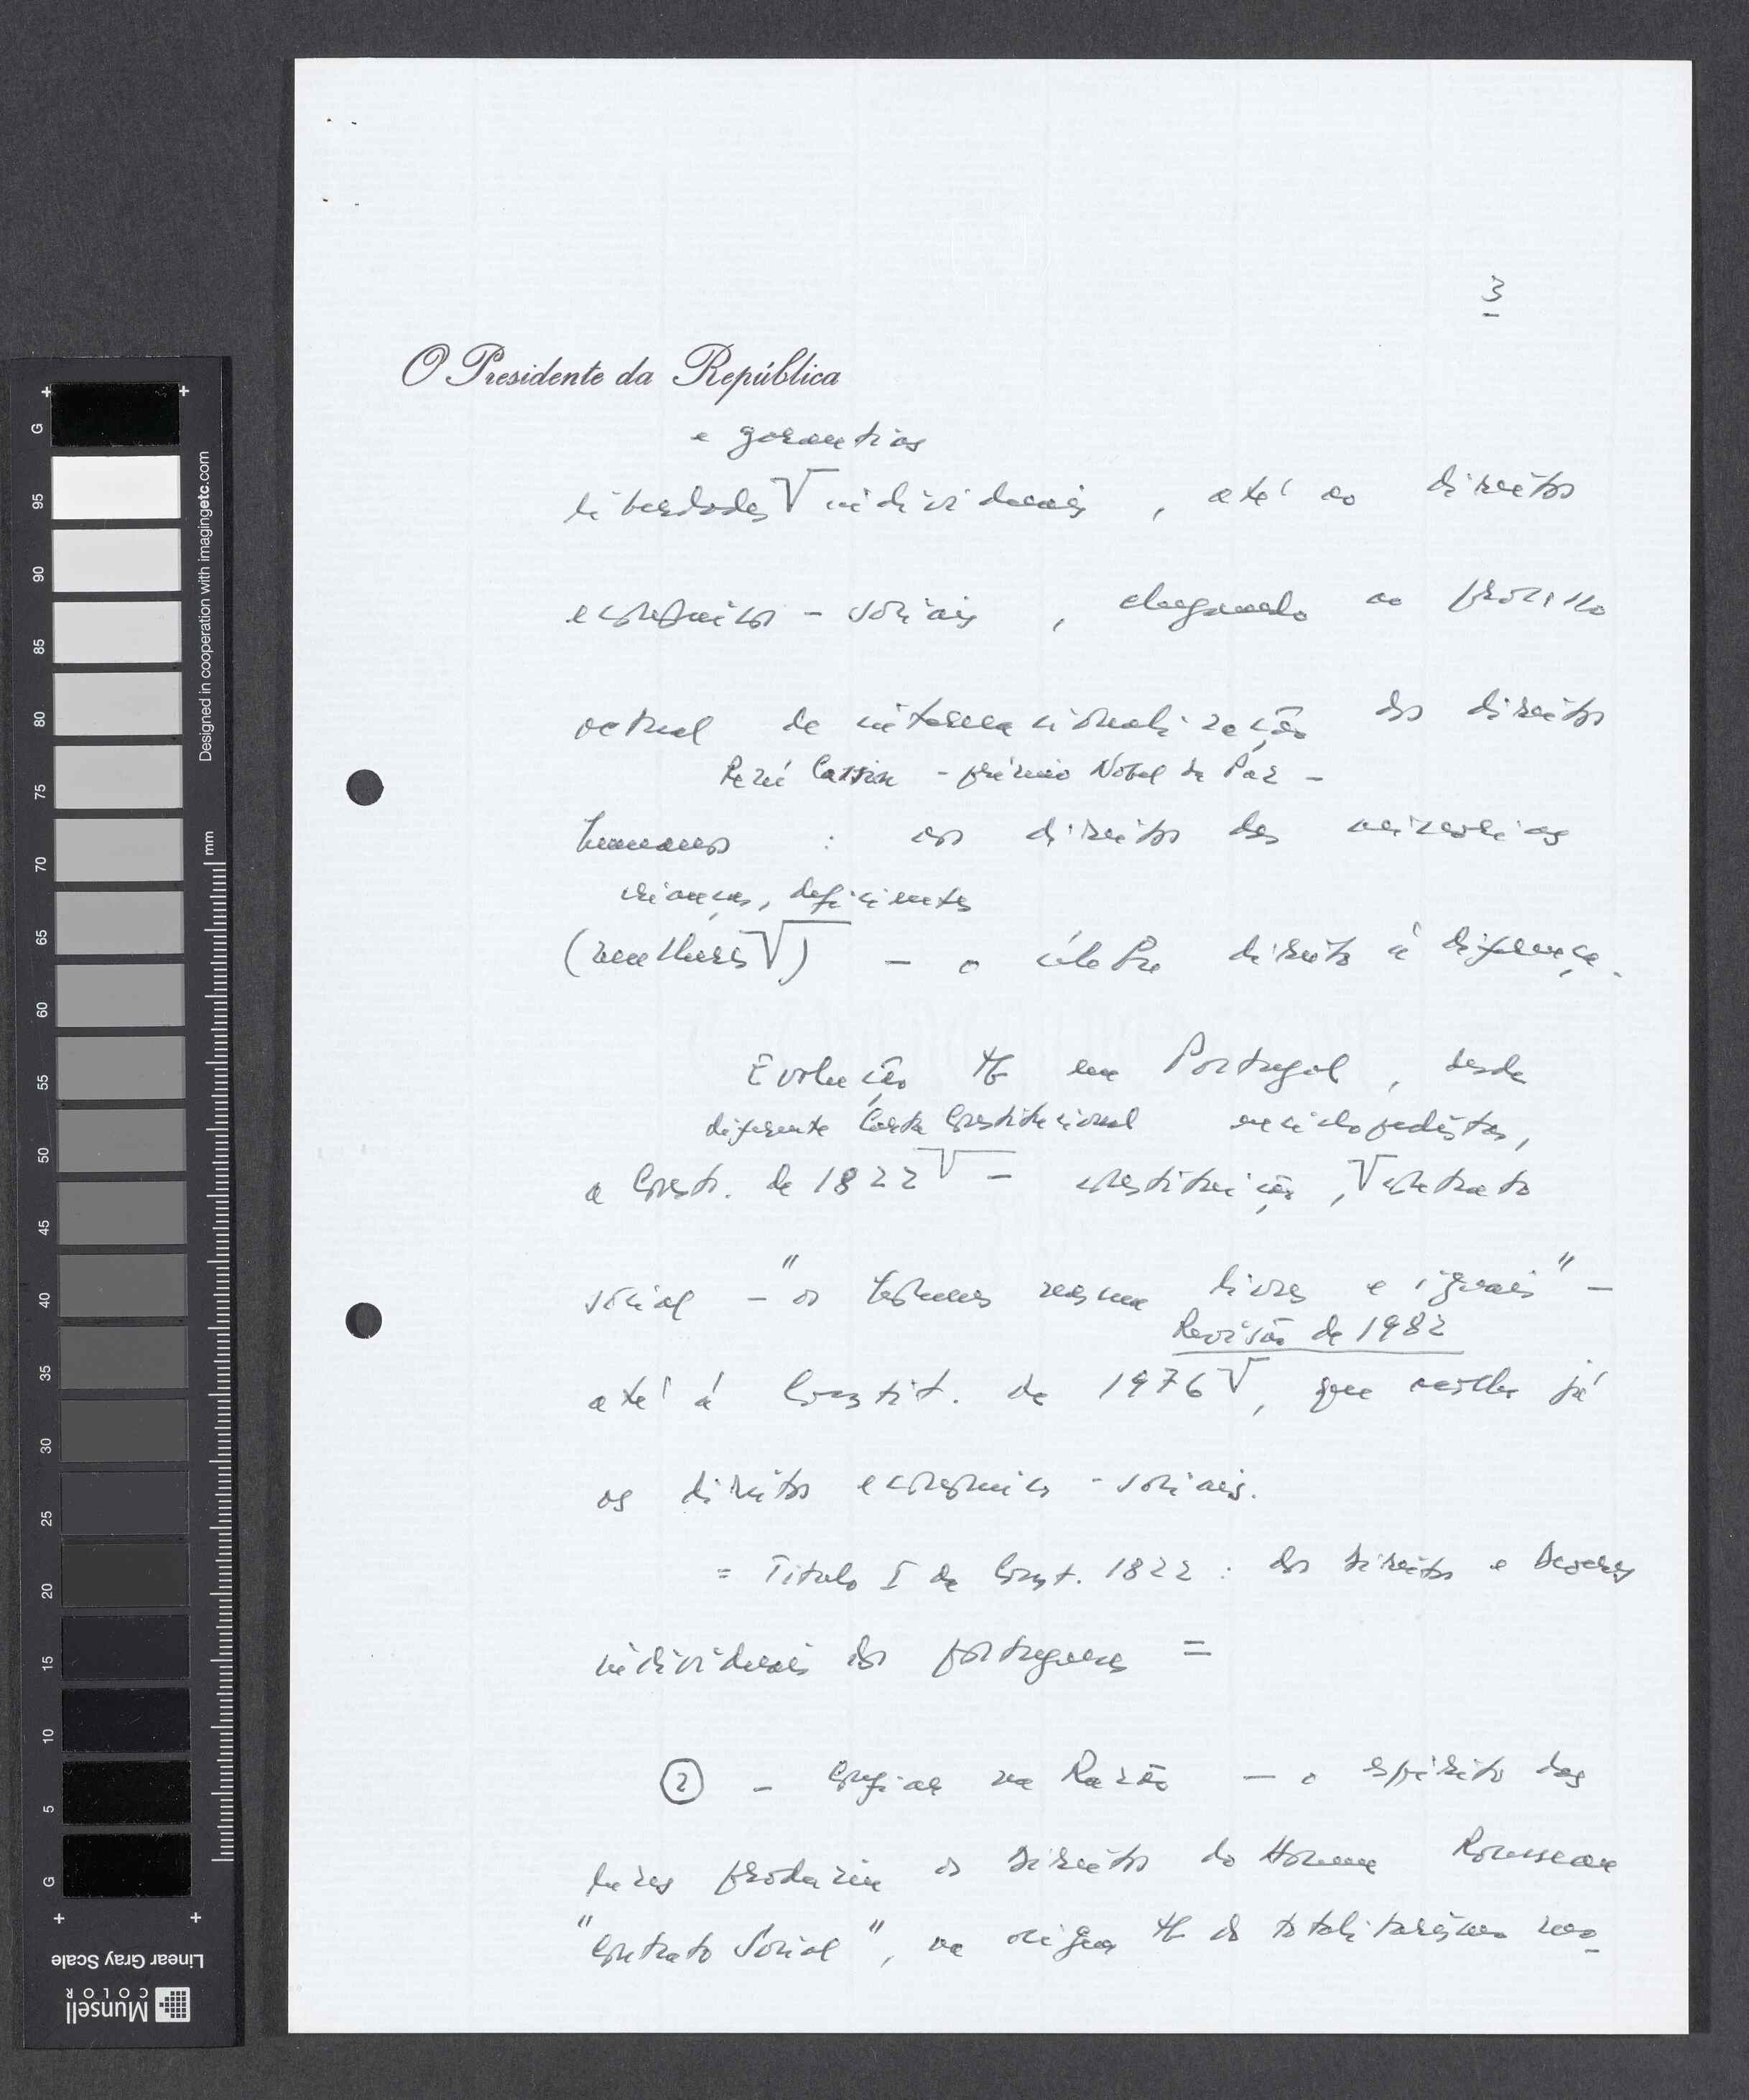 3
O Presidente da República
e garantias
liberdades V individuais, até ao direitos
económicos - sociais, chegando ao processo
actual de internacionalização dos direitos
René Cassin - prémio Nobel da Paz -
humanos : os direitos das minorias
crianças, deficientes
(mulheres V) - o célebre direito à diferença.
Evolução tb em Portugal, desde
diferente Carta Constitucional enciclopedistas,
a Const. de 1822 V - constituição, V contrato
social - "os homens nascem livres e iguais" -
Revisão de 1982
até à Constit. de 1976 V, que acolhe já
os direitos económicos - sociais.
= Título I da Const. 1822 : dos Direitos e Deveres
individuais dos portugueses =
② - Confiar na Razão - o espírito das
luzes produziu os Direitos do Homem Rousseau
"Contrato Social", na origem tb do totalitarismo mo-
95
90
85
80
75
70
65
60
55
50
45
40
35
30
25
20
15
10
5
G
G
mm
Designed in cooperation with imagingetc.com
Linear Gray Scale
Munsell
COLOR